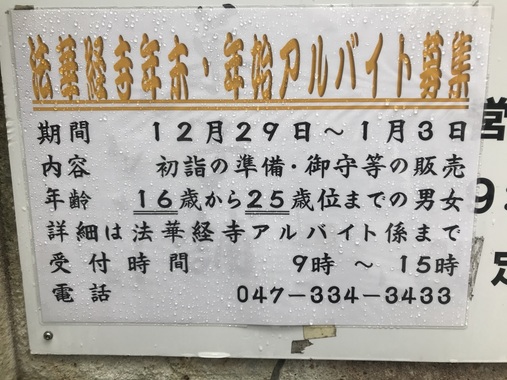 法華経寺年末・年始アルバイト募集
期間　12月29日～1月3日
内容　初詣の準備・御守等の販売
年齢　16歳から25歳位までの男女
詳細は法華経寺アルバイト係まで
受付時間　9時～15時
電話　047-334-3433
営
9
定